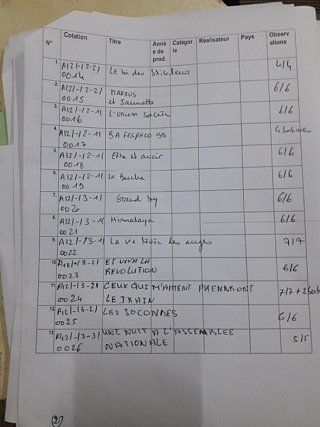 N° Cotation Titre Année de prod. Catégorie Réalisateur Pays Observations
1 A12/-1-2-2/ 0014 et la des 4/4
2 A12/-1-2-2/ 0015 MARIUS et Jeannette 6/6
3 A12/-1-2-1/ 0016 L'union sacrée 6/6
4 A12/-1-2-1/ 0017 BA FESPACO 99 4 bobine
5 A12/-1-2-1/ 0018 Etre et avoir 6/6
6 A12/-1-2-1/ 0019 La Buche 6/6
7 A12/-1-3-1/ 0020 Stand by 6/6
8 A12/-1-3-1/ 0021 Himalaya 6/6
9 A12/-1-3-1/ 0022 La vie des anges 7/7
10 A12/-1-3-2/ 0023 ET VIVE LA REVOLUTION 6/6
11 A12/-1-3-2/ 0024 CEUX QUI M'AIMENT PRENDRONT LE TRAIN 7/7 + 2 bob
12 A12/-1-3-2/ 0025 LES JOCONDES 6/6
13 A12/-1-3-3/ 0026 UNE NUIT A L'ASSEMBLEE NATIONALE 5/5
(2)